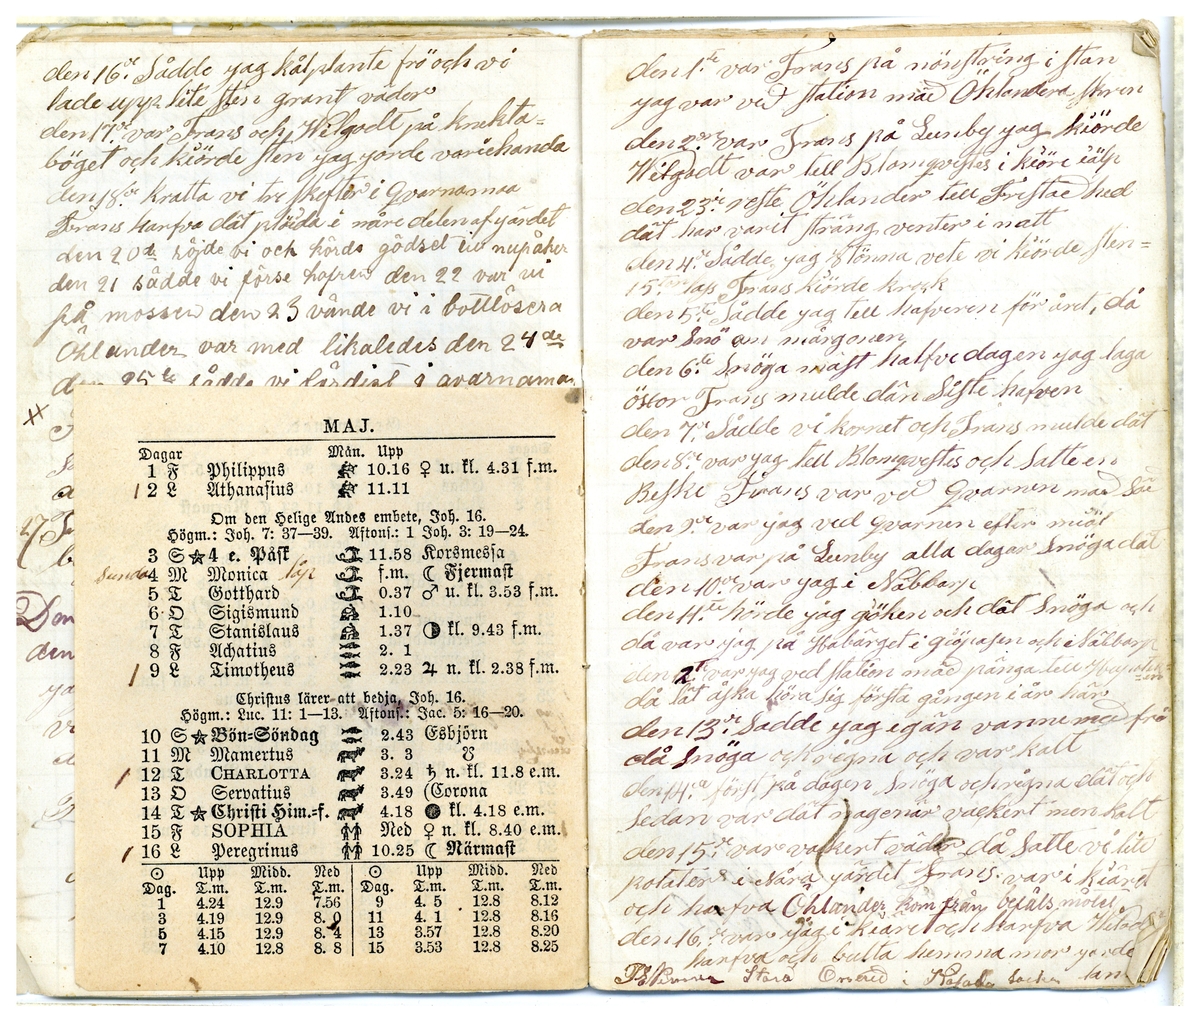 den 16de Sådde jag kålplante frö och vi
lade upp lite sten grant väder
den 17de var Frans och Wilgodt på knekta=
böget och kiörde sten jag jorde variehanda
den 18de kratta vi tre skefter i Qvarnamaa
Frans harfva dät plöida i näre delen af gärdet
den 20de röjde vi och körde gödsel
den 21 sådde vi förse hafren den 22 var vi
på mossen den 23 vände vi i bottlösera
Öhlander var med likaledes den 24de
den 25te sådde vi färdigt i qvarnama
MAJ.
Dagar Mån. Upp
1 F Philippus 10.16 ♀ u. kl. 4.31 f.m.
2 L Athanasius 11.11
Om den Helige Andes embete, Joh. 16.
Högm.: Joh. 7: 37—39. Aftons.: 1 Joh. 3: 19—24.
3 S ★ 4 e. Påsk 11.58 Korsmessa
4 M Monica f.m. ☾ Fjermast
5 T Gotthard 0.37 ♂ u. kl. 3.53 f.m.
6 O Sigismund 1.10
7 T Stanislaus 1.37 ◑ kl. 9.43 f.m.
8 F Achatius 2. 1
9 L Timotheus 2.23 ♃ n. kl. 2.38 f.m.
Christus lärer att bedja, Joh. 16.
Högm.: Luc. 11: 1—13. Aftons.: Jac. 5: 16—20.
10 S ★ Bön-Söndag 2.43 Esbjörn
11 M Mamertus 3. 3 ☋
12 T CHARLOTTA 3.24 ♄ n. kl. 11.8 e.m.
13 O Servatius 3.49 (Corona
14 T ★ Christi Him.-f. 4.18 ● kl. 4.18 e.m.
15 F SOPHIA Ned ♀ n. kl. 8.40 e.m.
16 L Peregrinus 10.25 ☾ Närmast
☉ Upp Midd. Ned ☉ Upp Midd. Ned
Dag. T.m. T.m. T.m. Dag. T.m. T.m. T.m.
1 4.24 12.9 7.56 9 4. 5 12.8 8.12
3 4.19 12.9 8. 0 11 4. 1 12.8 8.16
5 4.15 12.9 8. 4 13 3.57 12.8 8.20
7 4.10 12.8 8. 8 15 3.53 12.8 8.25
den 1ste var Frans på mönstring i stan
jag var ved station mäd Öhlandera skrin
den 2dre var Frans på Lunby jag kiörde
Wilgodt var tell Blomqvestes i kiöre iälp
den 23de reste Öhlander tell Fristad hed
dät har varit sträng venter i natt
den 4de Sådde jag Stönna vete vi kiörde sten=
15 lass Frans kiörde krok
den 5te Sådde jag tell hafveren för ärt, då
var Snö om mårgonen
den 6te Snöga mäst halfva dagen jag laga
öskor Frans mulde dän Siste hafven
den 7de Sådde vi kornet och Frans mulde dät
den 8de var jag tell Blomqvestes och Satte en
Beske Frans var ved Qvarnen mäd Säe
den 9de var jag ved qvarnen efter miöl
Frans var på Lunby alla dagar Snöga dät
den 10de var jag i Näbbarp
den 11te hörde jag göken och dät Snöga och
då var jag på Habärget i och Näbbarp
den 12te var jag ved station mäd pänga tell
då lät åska höra sig första gången i år här
den 13de Sådde jag igän vanne frö
då Snöga och regna och var kalt
den 14de först på dagen Snöga och rägna dät och
Sedan var dät nagenär vackert men kalt
den 15de var vackert väder då Satte vi lite
potäter i Nära gärdet Frans var i kiäret
och harfva Öhlander kom från befäls möte
den 16de var jag i kiäre och harfva Wilgodt
harfva och bulta hemma mor jorde